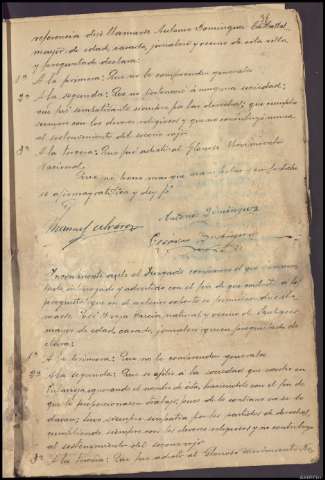 referencia dijo llamarse Antonio Dominguez
mayor de edad, casado, jornalero y vecino de esta villa
y preguntado declara:
1º A la primera: Que no le comprenden generales
2º A la segunda: Que no pertenecio á ninguna sociedad;
que fué simpatizante siempre por las derechas; que cumplio
siempre con los deveres religiosos y que no contribuyó nunca
al sostenimiento del socorro rojo
3º A la tercera: Que fué adicto al Glorioso Movimiento
Nacional.
Que no tiene mas que manifestar y en lo dicho
se afirma y ratifica y doy fé
Manuel Alvarez
Antonio Dominguez
Incontinenti ante el Juzgado comparece el que
y advertido con el fin de que conteste á lo
pregunte que en el anterior
García, natural y vecino de
mayor de edad, casado, jornalero y quien preguntado de
clara:
1º A la primera: Que no le comprenden generales
2º A la segunda: Que se afilio á la sociedad que existio en
ignorando el nombre de esta, haciendolo con el fin de
que le proporcionasen trabajo, pues de lo contrario no se lo
davan; tuvo siempre simpatia por los partidos de derechas,
cumpliendo siempre con los deveres religiosos y no contribuyo
al sostenimiento del socorro rojo
3º A la tercera: Que fué adicto al Glorioso Movimiento Na